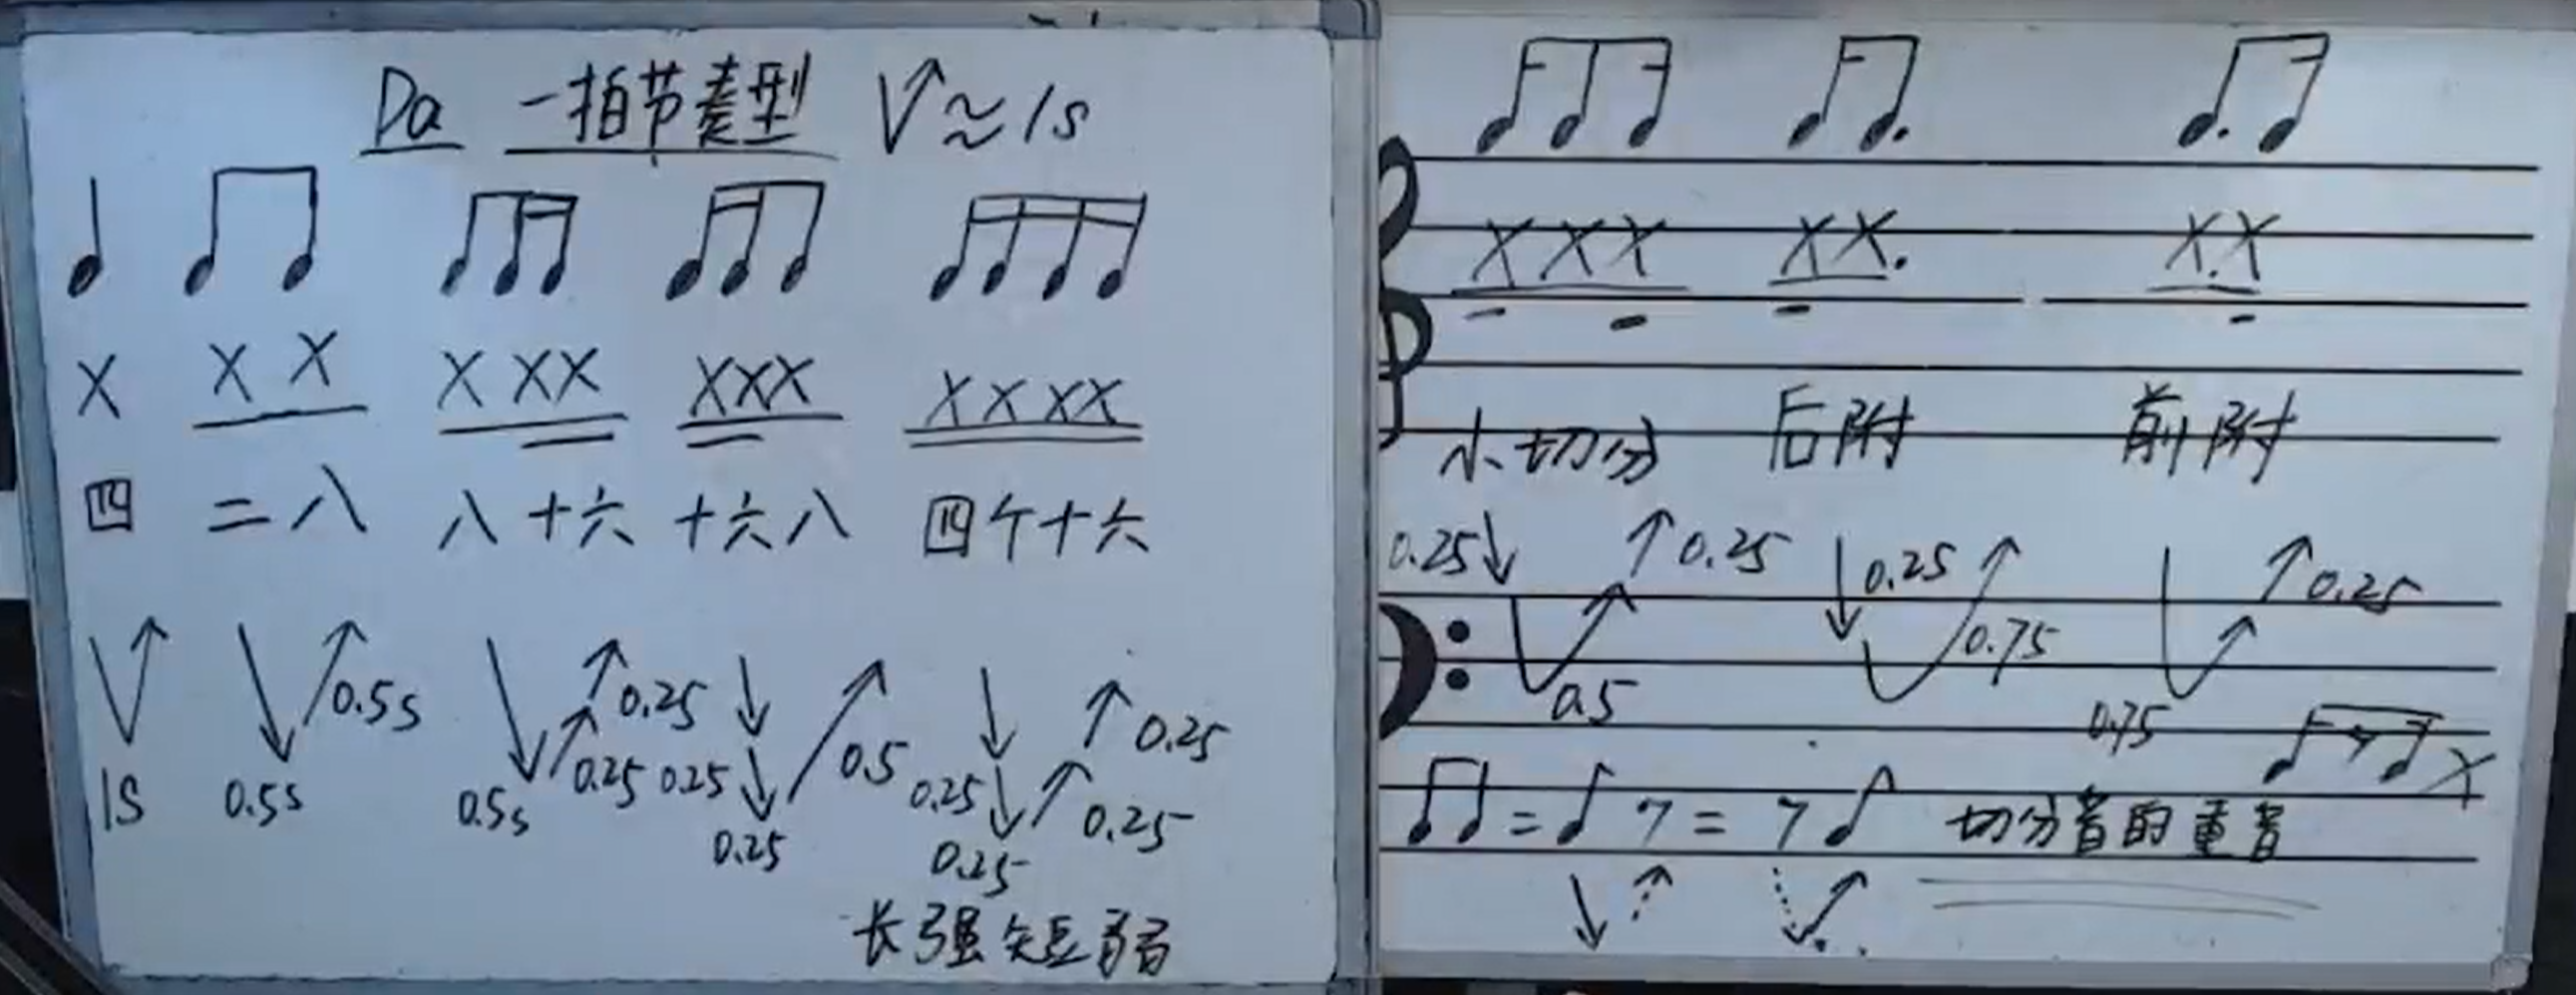 Da 一拍节奏型 V≈1s
X X X X XX XXX XXXX
四 二八 八十六 十六八 四个十六
1S 0.5s 0.5s 0.5s 0.25 0.25 0.25 0.25 0.5 0.25 0.25 0.25 0.25
长强短弱
XXX XX. X.X
小切分 后附 前附
0.25 0.5 0.25 0.25 0.75 0.75 0.25
X
= = 切分音的重音